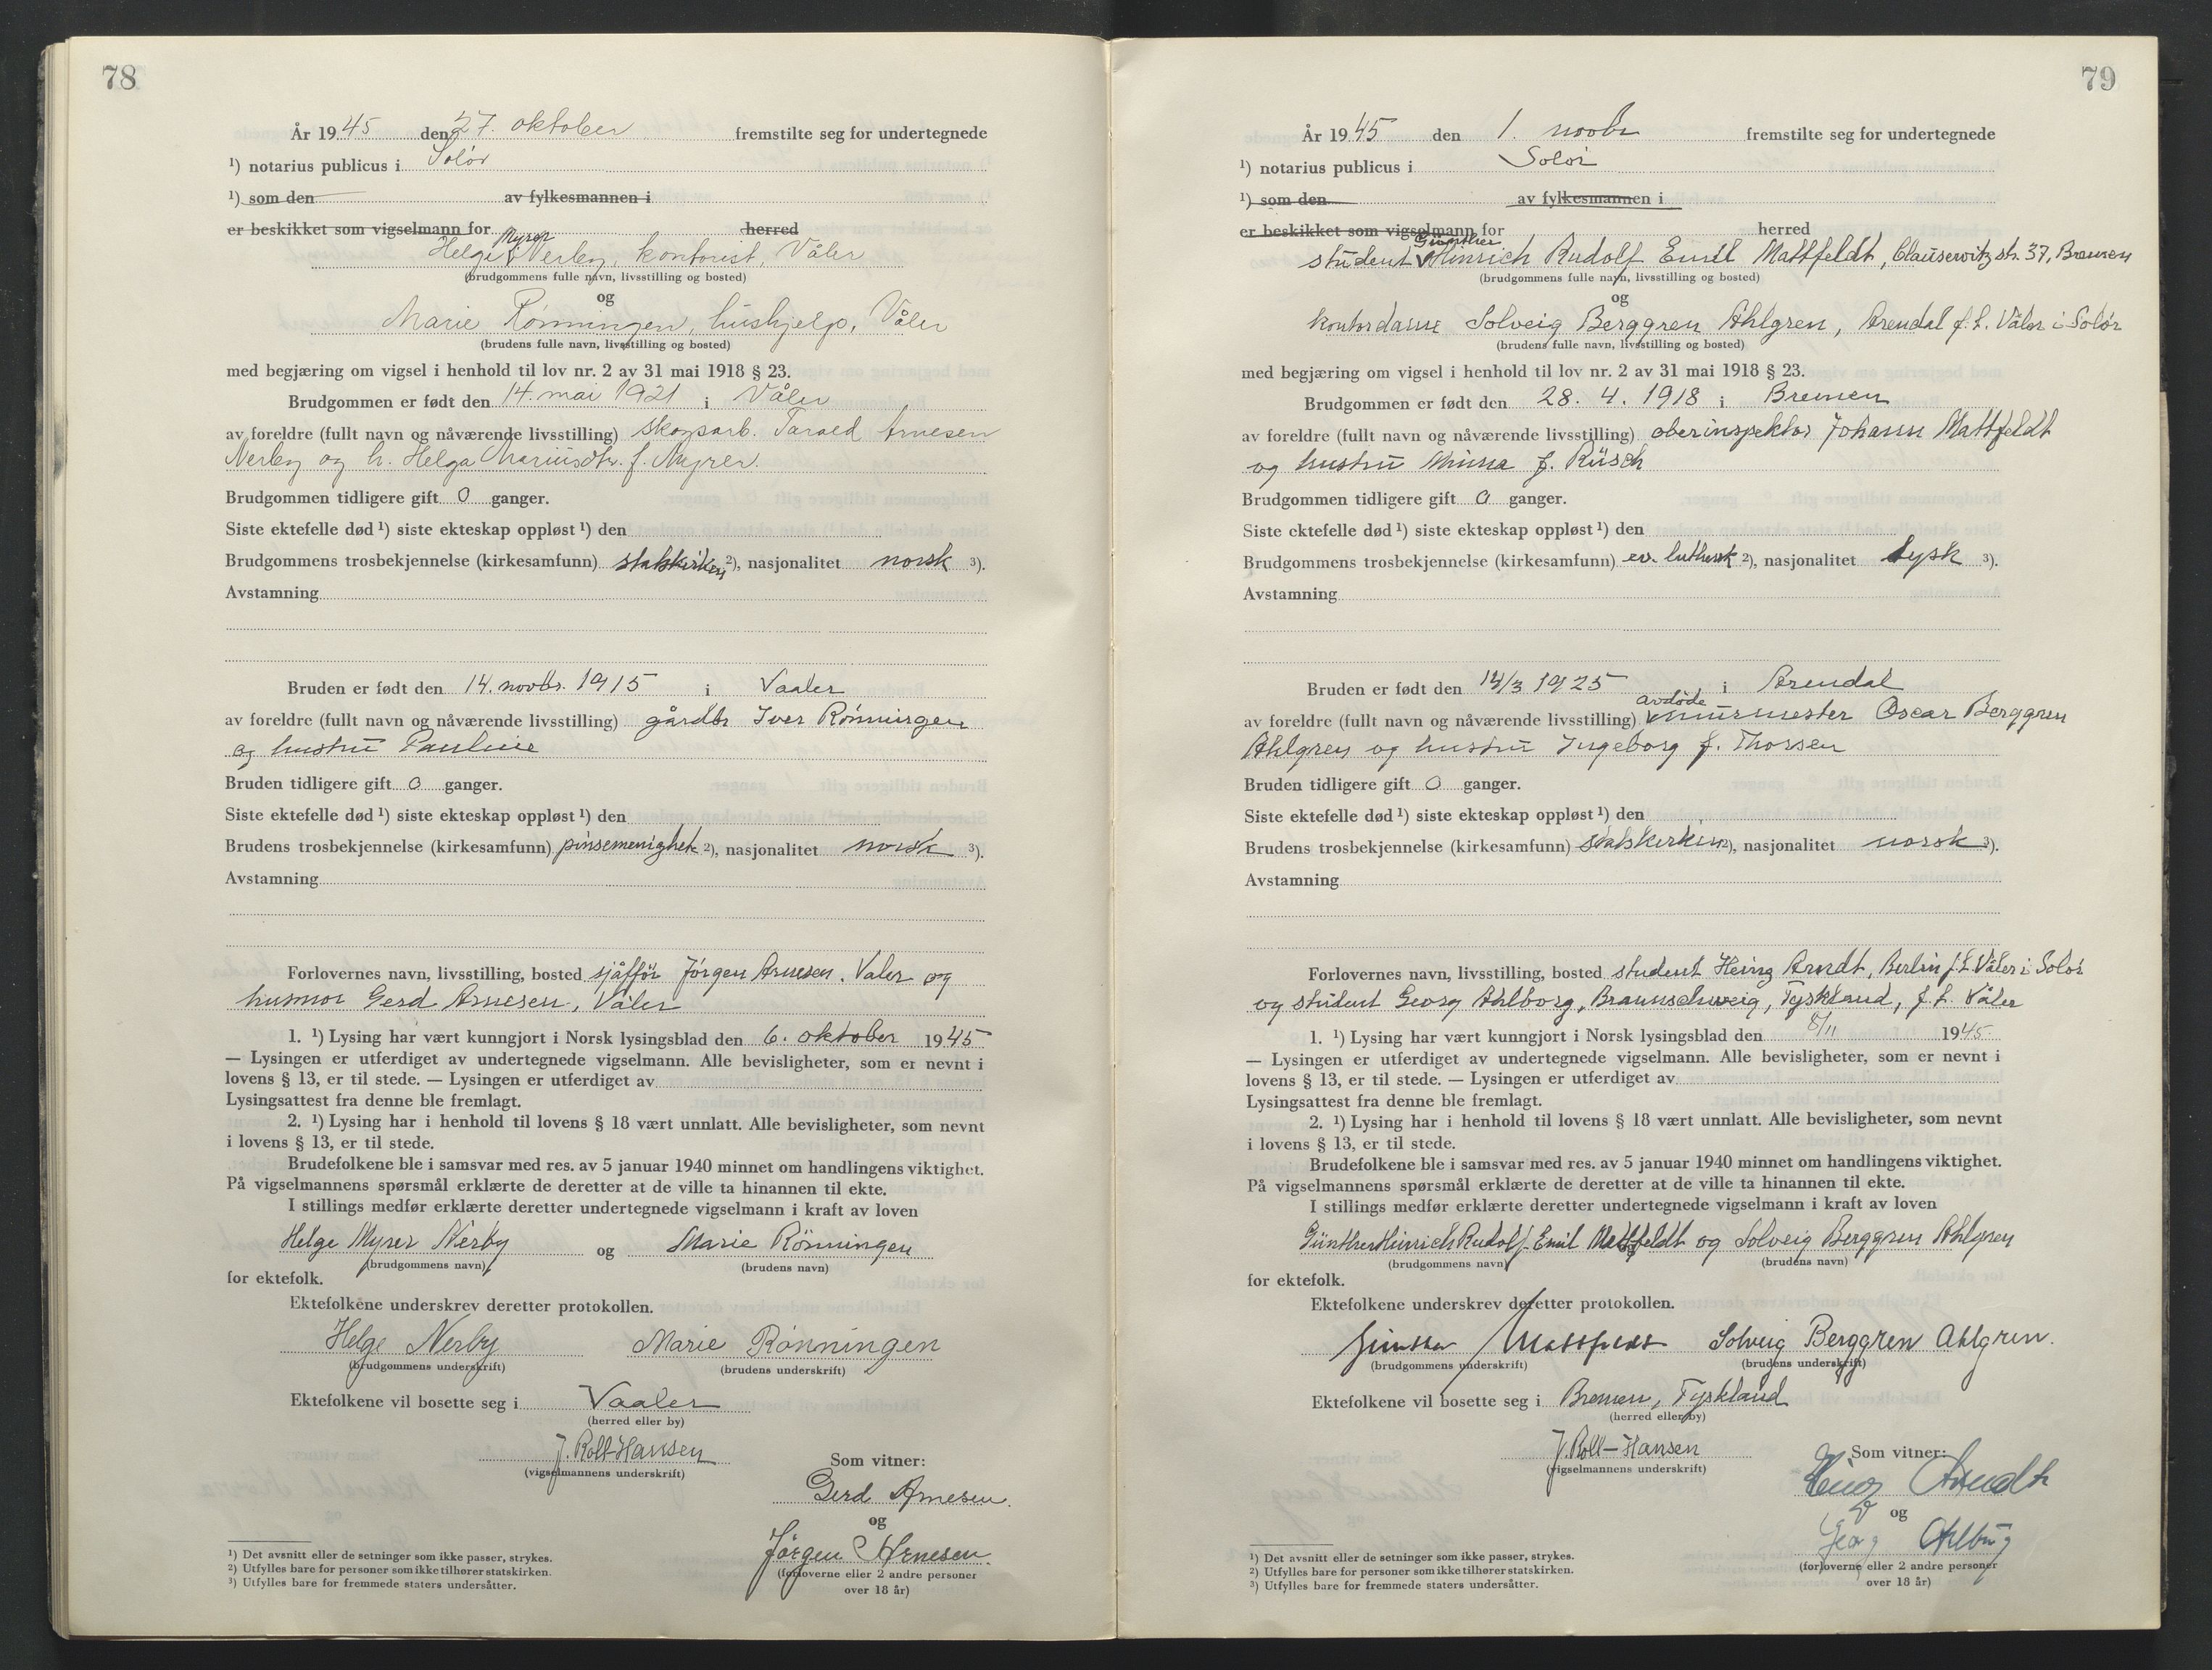 78
År 1945 den 27. oktober fremstilte seg for undertegnede
¹) notarius publicus i Solør
¹) som den av fylkesmannen i
er beskikket som vigselmann for herred
Myrer
Helge Nerby, kontorist, Våler
(brudgommens fulle navn, livsstilling og bosted)
og
Marie Rønningen, hushjelp, Våler
(brudens fulle navn, livsstilling og bosted)
med begjæring om vigsel i henhold til lov nr. 2 av 31 mai 1918 § 23.
Brudgommen er født den 14. mai 1921 i Våler
av foreldre (fullt navn og nåværende livsstilling) skogsarb. Tarald Arnesen
Nerby og h. Helga Mariusdtr. f. Myrer.
Brudgommen tidligere gift 0 ganger.
Siste ektefelle død ¹) siste ekteskap oppløst ¹) den
Brudgommens trosbekjennelse (kirkesamfunn) statskirken ²), nasjonalitet norsk ³).
Avstamning
Bruden er født den 14. novbr. 1915 i Vaaler
av foreldre (fullt navn og nåværende livsstilling) gårdbr Iver Rønningen
og hustru Pauline
Bruden tidligere gift 0 ganger.
Siste ektefelle død ¹) siste ekteskap oppløst ¹) den
Brudens trosbekjennelse (kirkesamfunn) pinsemenighet ²), nasjonalitet norsk ³).
Avstamning
Forlovernes navn, livsstilling, bosted sjåffør Jørgen Arnesen. Våler og
husmor Gerd Arnesen, Våler
1. ¹) Lysing har vært kunngjort i Norsk lysingsblad den 6. oktober 1945
— Lysingen er utferdiget av undertegnede vigselmann. Alle bevisligheter, som er nevnt i
lovens § 13, er til stede. — Lysingen er utferdiget av
Lysingsattest fra denne ble fremlagt.
2. ¹) Lysing har i henhold til lovens § 18 vært unnlatt. Alle bevisligheter, som nevnt
i lovens § 13, er til stede.
Brudefolkene ble i samsvar med res. av 5 januar 1940 minnet om handlingens viktighet.
På vigselmannens spørsmål erklærte de deretter at de ville ta hinannen til ekte.
I stillings medfør erklærte deretter undertegnede vigselmann i kraft av loven
Helge Myrer Nerby og Marie Rønningen
(brudgommens navn) (brudens navn)
for ektefolk.
Ektefolkene underskrev deretter protokollen.
Helge Nerby Marie Rønningen
(brudgommens underskrift) (brudens underskrift)
Ektefolkene vil bosette seg i Vaaler
(herred eller by)
J. Roll-Hansen
(vigselmannens underskrift)
Som vitner:
Gerd Arnesen.
og
Jørgen Arnesen.
(forloverne eller 2 andre personer
over 18 år)
¹) Det avsnitt eller de setninger som ikke passer, strykes.
²) Utfylles bare for personer som ikke tilhører statskirken.
³) Utfylles bare for fremmede staters undersåtter.
79
År 1945 den 1. novbr fremstilte seg for undertegnede
¹) notarius publicus i Solør
¹) som den av fylkesmannen i
er beskikket som vigselmann for herred
Günther
student Hinrich Rudolf Emil Mattfeldt, Clausewitzstr. 37, Bremen
(brudgommens fulle navn, livsstilling og bosted)
og
kontordame Solveig Berggren Ahlgren, Arendal f.t. Våler i Solør
(brudens fulle navn, livsstilling og bosted)
med begjæring om vigsel i henhold til lov nr. 2 av 31 mai 1918 § 23.
Brudgommen er født den 28. 4. 1918 i Bremen
av foreldre (fullt navn og nåværende livsstilling) oberinspektør Johann Mattfeldt
og hustru Minna f. Rüsch
Brudgommen tidligere gift 0 ganger.
Siste ektefelle død ¹) siste ekteskap oppløst ¹) den
Brudgommens trosbekjennelse (kirkesamfunn) ev. luthersk ²), nasjonalitet tysk ³).
Avstamning
Bruden er født den 14/3 1925 i Arendal
avdøde
av foreldre (fullt navn og nåværende livsstilling) murmester Oscar Berggren
Ahlgren og hustru Ingeborg f. Thorsen
Bruden tidligere gift 0 ganger.
Siste ektefelle død ¹) siste ekteskap oppløst ¹) den
Brudens trosbekjennelse (kirkesamfunn) statskirken ²), nasjonalitet norsk ³).
Avstamning
Forlovernes navn, livsstilling, bosted student Heinz Arndt, Berlin f.t. Våler i Solør
og student Georg Ahlborg, Braunschweig, Tyskland, f.t. Våler
1. ¹) Lysing har vært kunngjort i Norsk lysingsblad den 8/11 1945
— Lysingen er utferdiget av undertegnede vigselmann. Alle bevisligheter, som er nevnt i
lovens § 13, er til stede. — Lysingen er utferdiget av
Lysingsattest fra denne ble fremlagt.
2. ¹) Lysing har i henhold til lovens § 18 vært unnlatt. Alle bevisligheter, som nevnt
i lovens § 13, er til stede.
Brudefolkene ble i samsvar med res. av 5 januar 1940 minnet om handlingens viktighet.
På vigselmannens spørsmål erklærte de deretter at de ville ta hinannen til ekte.
I stillings medfør erklærte deretter undertegnede vigselmann i kraft av loven
Günther Hinrich Rudolf Emil Mattfeldt og Solveig Berggren Ahlgren
(brudgommens navn) (brudens navn)
for ektefolk.
Ektefolkene underskrev deretter protokollen.
Günther Mattfeldt Solveig Berggren Ahlgren.
(brudgommens underskrift) (brudens underskrift)
Ektefolkene vil bosette seg i Bremen, Tyskland
(herred eller by)
J. Roll-Hansen
(vigselmannens underskrift)
Som vitner:
Heinz Arndt
og
Georg Ahlburg
(forloverne eller 2 andre personer
over 18 år)
¹) Det avsnitt eller de setninger som ikke passer, strykes.
²) Utfylles bare for personer som ikke tilhører statskirken.
³) Utfylles bare for fremmede staters undersåtter.